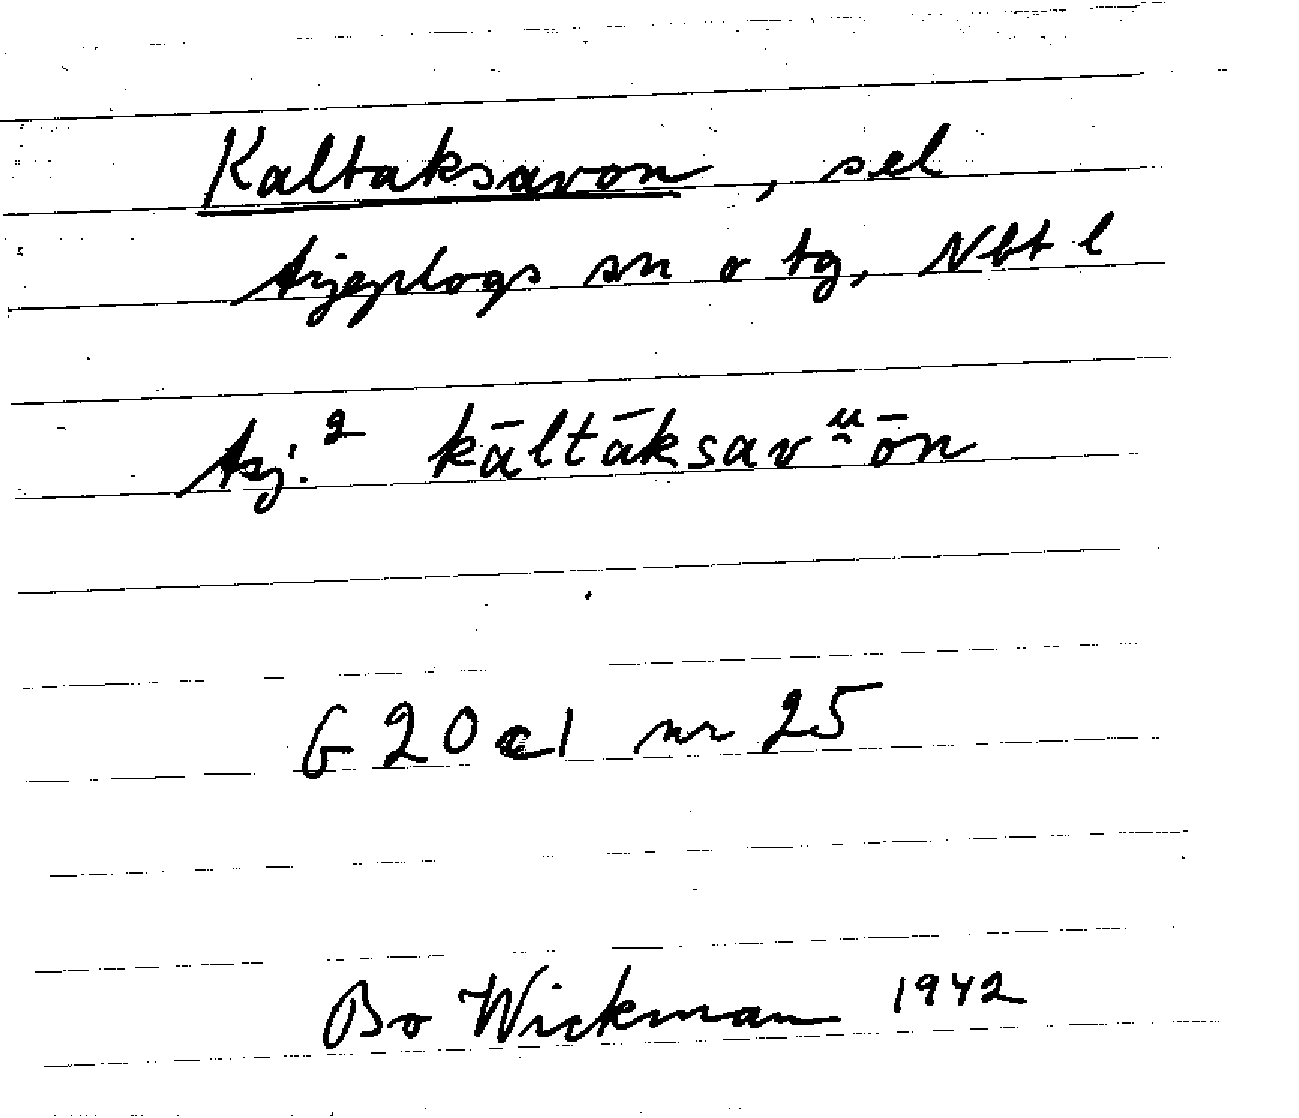 Kaltaksavon, sel
Arjeplogs sn o tg, Nbt l
Arj.² kāltāksavᵘ̯ōn
G 20 c1 nr 25
Bo Wickman 1942